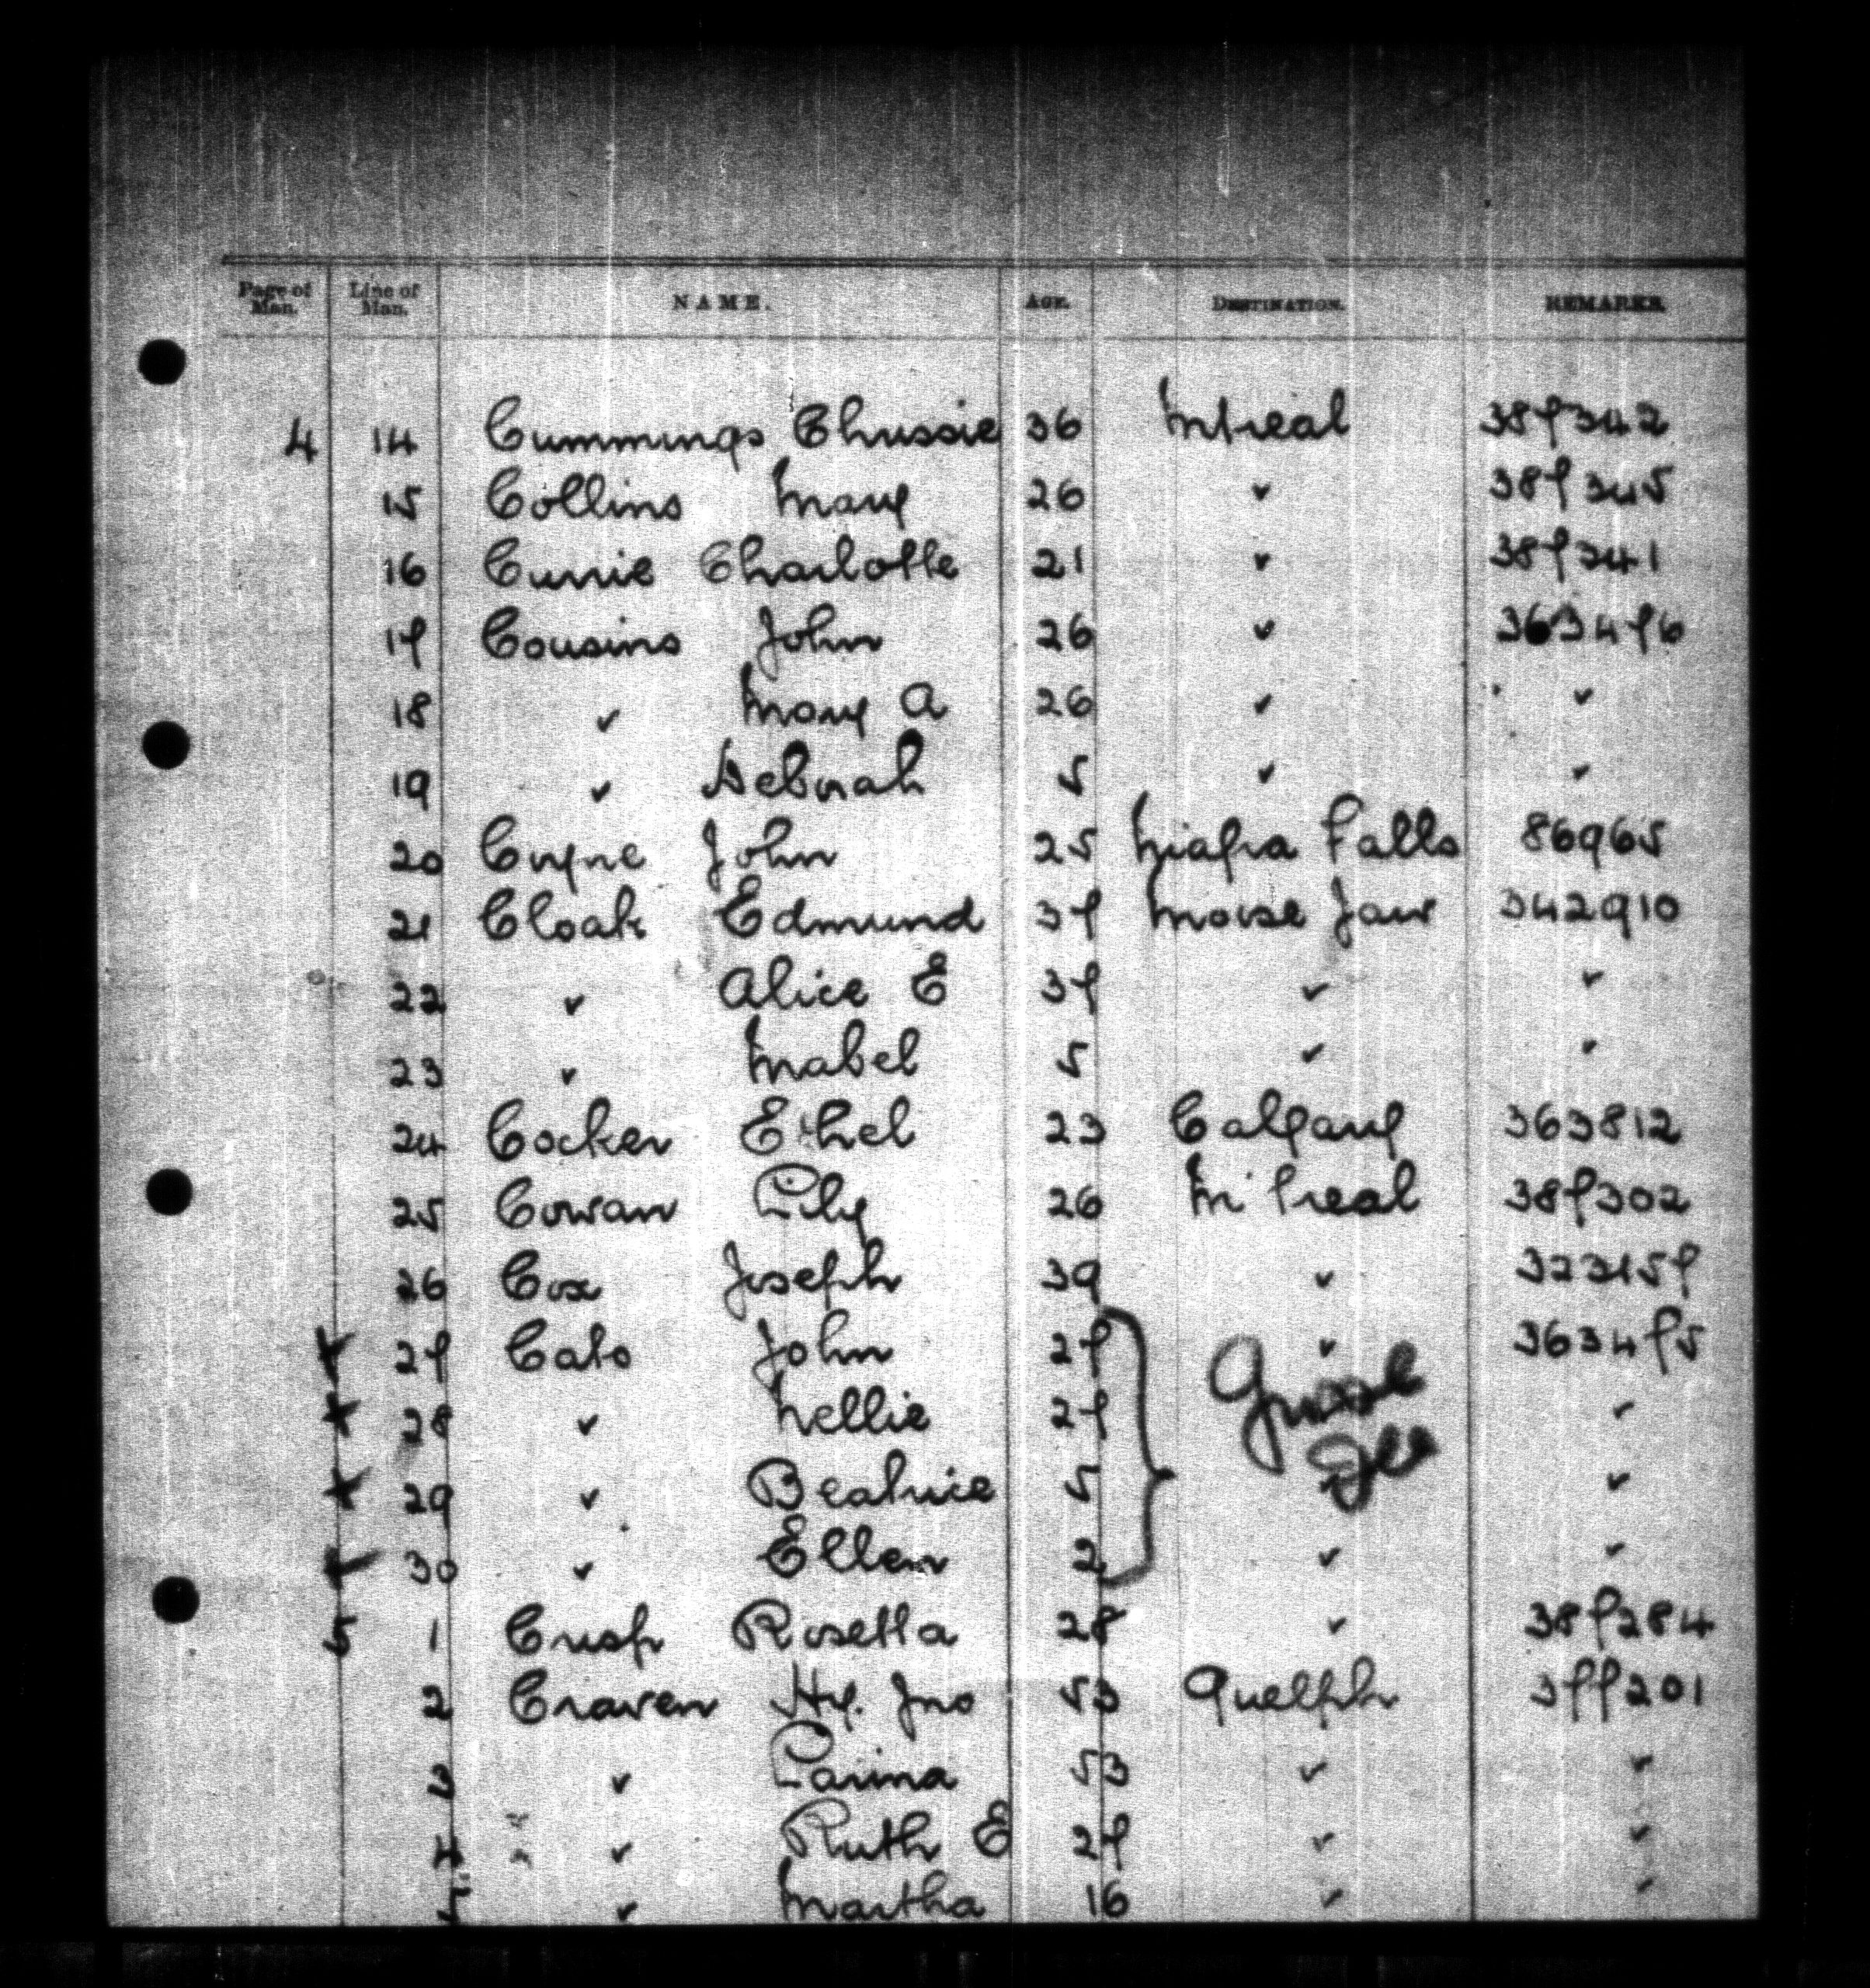 Page of Man. Line of Man. NAME. AGE. DESTINATION. REMARKS.
4 14 Cummings Chrissie 36 Mtreal 387342
15 Collins Mary 26 " 387345
16 Currie Charlotte 21 " 387341
17 Cousins John 26 " 363476
18 " Mary A 26 " "
19 " Deborah 5 " "
20 Coyne John 25 Niagra Falls 86965
21 Cloak Edmund 37 Moose Jaw 342910
22 " Alice E 37 " "
23 " Mabel 5 " "
24 Cocker Ethel 23 Calgary 363812
25 Cowan Lily 26 M'treal 387302
26 Cox Joseph 39 "
x 27 Cato John 27 " 363475
x 28 " Nellie 27 "
x 29 " Beatrice 5 "
30 " Ellen 2 " "
5 1 Crisp Rosetta 28 " 387284
2 Craven Hy. Jno 53 Guelph 377201
3 " Lavina 53 " "
4 " Ruth E 27 " "
5 " Martha 16 " "